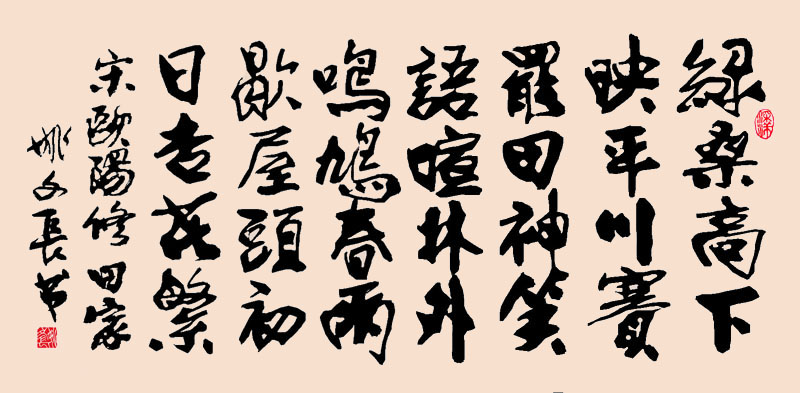 綠桑高下
映平川賽
罷田神笑
語喧林外
鳴鳩春雨
歇屋頭初
日杏花繁
宋歐陽修田家
姚文長书